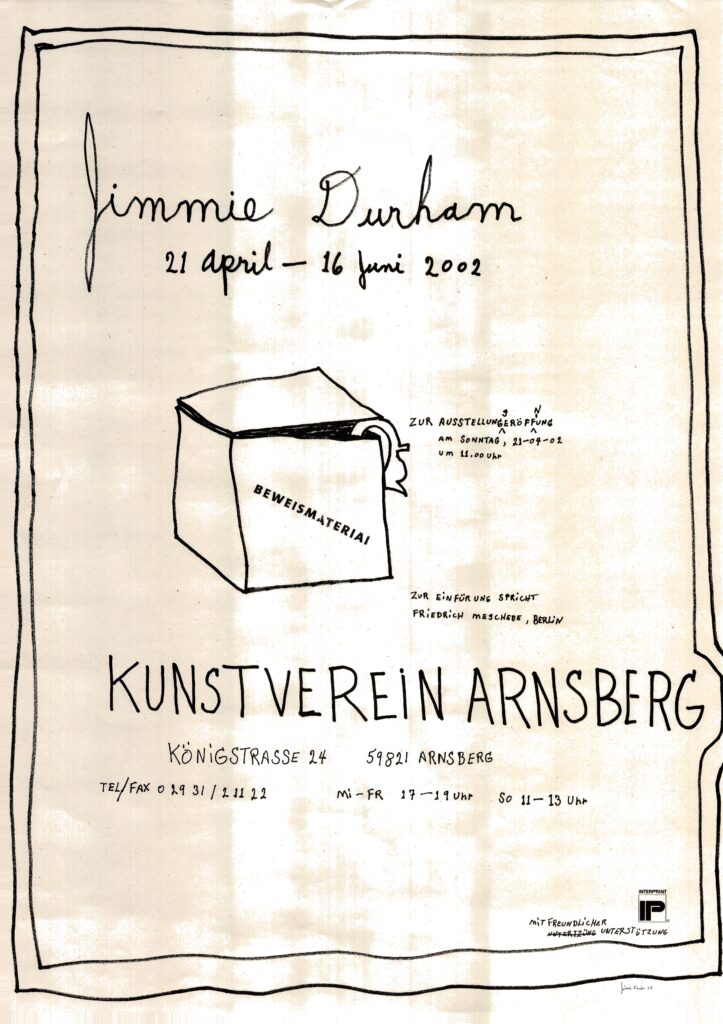 Jimmie Durham
21 april – 16 Juni 2002
ZUR AUSSTELLUNGSERÖFFNUNG
AM SONNTAG, 21-04-02
UM 11.00 Uhr
BEWEISMATERIAL
ZUR EINFÜRUNG SPRICHT
FRIEDRICH MESCHEDE, BERLIN
KUNSTVEREIN ARNSBERG
KÖNIGSTRASSE 24 59821 ARNSBERG
TEL/FAX 0 29 31 / 2 11 22 Mi – FR 17 – 19 Uhr So 11 – 13 Uhr
INTERPRINT
IP
MIT FREUNDLICHER
UNTERTZÜNG UNTERSTÜTZUNG